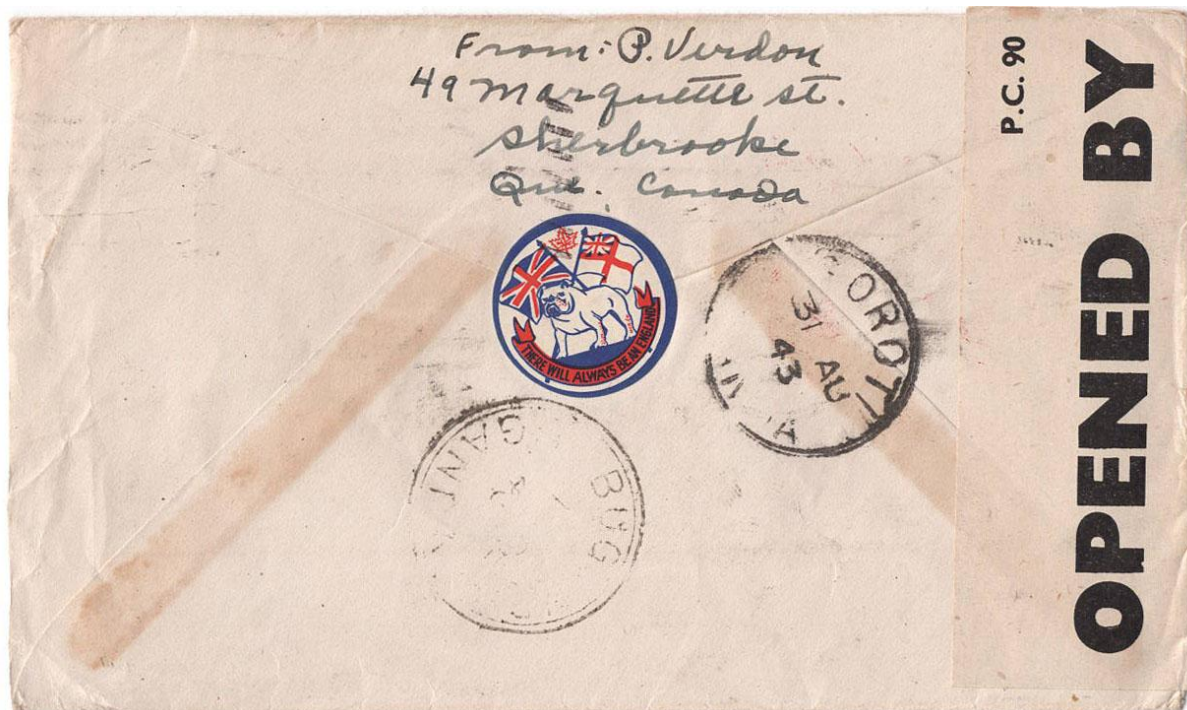 From: P. Verdon
49 Marquette st.
Sherbrooke
Que. Canada
THERE WILL ALWAYS BE AN ENGLAND
OROTI
31 AU
43
BUG
GAN
P.C. 90
OPENED BY